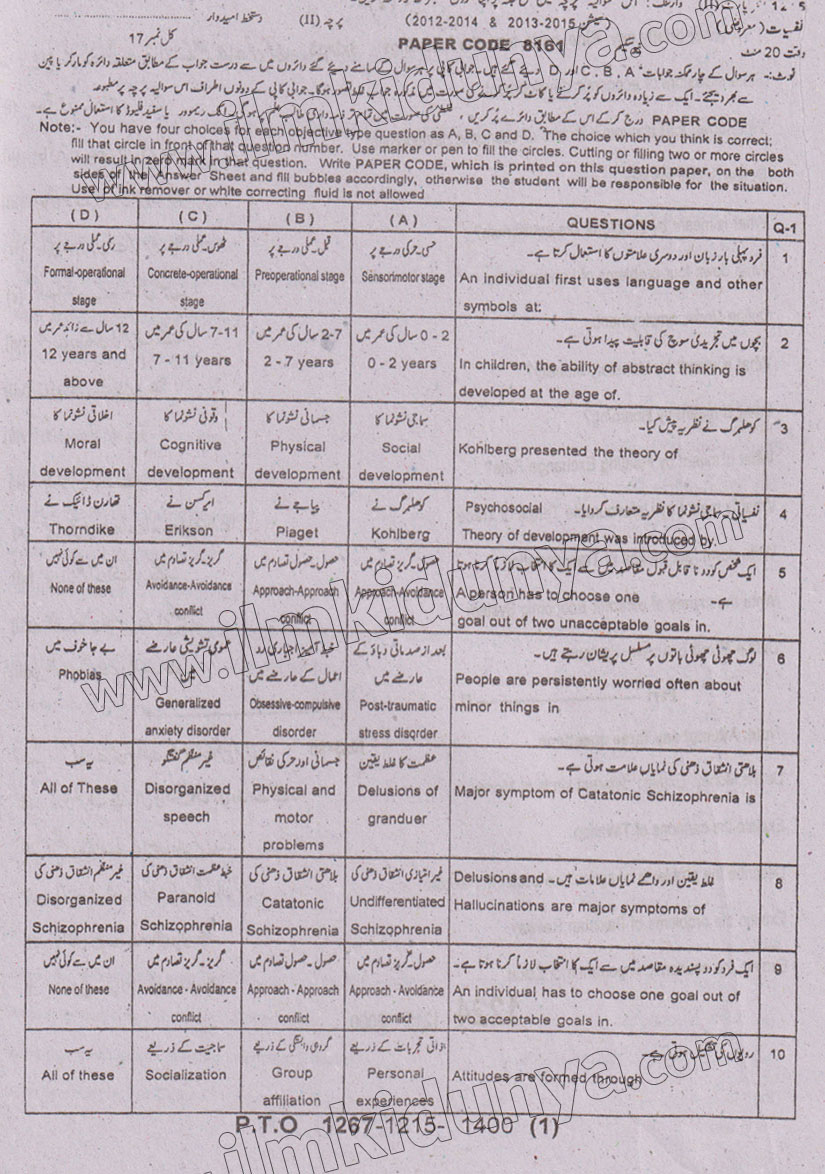 نفسیات (معروضی)
پرچہ (II)
دستخط امیدوار
(سیشن 2015-2013 & 2014-2012)
وقت 20 منٹ
PAPER CODE 8161
کل نمبر 17
نوٹ:- ہر سوال کے چار ممکنہ جوابات C، B، A اور D دیئے گئے ہیں۔ جوابی کاپی پر ہر سوال کے سامنے دیئے گئے دائروں میں سے درست جواب کے مطابق متعلقہ دائرہ کو مارکر یا پین
سے بھر دیجئے۔ ایک سے زیادہ دائروں کو پُر کرنے یا کاٹ کر پُر کرنے کی صورت میں مذکورہ جواب غلط تصور ہوگا۔ جوابی کاپی کے دونوں اطراف اس سوالیہ پرچہ پر مطبوعہ
PAPER CODE درج کر کے اس کے مطابق دائرے پُر کریں،
Note:- You have four choices for each objective type question as A, B, C and D. The choice which you think is correct;
fill that circle in front of that question number. Use marker or pen to fill the circles. Cutting or filling two or more circles
will result in zero mark in that question. Write PAPER CODE, which is printed on this question paper, on the both
sides of the Answer Sheet and fill bubbles accordingly, otherwise the student will be responsible for the situation.
Use of ink remover or white correcting fluid is not allowed
(D) (C) (B) (A) QUESTIONS Q-1
رسمی۔عملی درجے پر ٹھوس۔عملی درجے پر قبل۔عملی درجے پر حسی۔حرکی درجے پر فرد پہلی بار زبان اور دوسری علامتوں کا استعمال کرتا ہے۔ 1
Formal-operational Concrete-operational Preoperational stage Sensorimotor stage An individual first uses language and other
stage stage symbols at:
12 سال سے زائد عمر میں 7-11 سال کی عمر میں 2-7 سال کی عمر میں 0 - 2 سال کی عمر میں بچوں میں تجریدی سوچ کی قابلیت پیدا ہوتی ہے۔ 2
12 years and 7 - 11 years 2 - 7 years 0 - 2 years In children, the ability of abstract thinking is
above developed at the age of.
اخلاقی نشوونما کا وقوفی نشوونما کا جسمانی نشوونما کا سماجی نشوونما کا کوھلبرگ نے نظریہ پیش کیا۔ 3
Moral Cognitive Physical Social Kohlberg presented the theory of
development development development development
تھارن ڈائیک نے ایرکسن نے پیاجے نے کوھلبرگ نے نفسیاتی۔سماجی نشوونما کا نظریہ متعارف کروایا۔ Psychosocial 4
Thorndike Erikson Piaget Kohlberg Theory of development was introduced by.
ان میں سے کوئی نہیں گریز۔گریز تصادم میں حصول۔حصول تصادم میں حصول۔گریز تصادم میں ایک شخص کو دو نا قابل قبول مقاصد میں سے ایک کا انتخاب لازماً کرنا ہوتا 5
None of these Avoidance-Avoidance Approach-Approach Approach-Avoidance A person has to choose one ہے۔
conflict conflict conflict goal out of two unacceptable goals in.
بے جا خوف میں عمومی تشویشی عارضے میں خبط آمیز اجباری رد اعمال کے عارضے میں بعد از صدماتی دباؤ کے عارضے میں لوگ چھوٹی چھوٹی باتوں پر مسلسل پریشان رہتے ہیں۔ 6
Phobias Generalized Obsessive-compulsive Post-traumatic People are persistently worried often about
anxiety disorder disorder stress disorder minor things in
یہ سب غیر منظم گفتگو جسمانی اور حرکی نقائص عظمت کا غلط یقین بلاحتی انشقاق ذھنی کی نمایاں علامت ہوتی ہے۔ 7
All of These Disorganized Physical and Delusions of Major symptom of Catatonic Schizophrenia is
speech motor granduer
problems
غیر منظم انشقاق ذھنی کی خبط عظمت انشقاق ذھنی کی بلاحتی انشقاق ذھنی کی غیر امتیازی انشقاق ذھنی کی غلط یقین اور واھمے نمایاں علامات ہیں۔ Delusions and 8
Disorganized Paranoid Catatonic Undifferentiated Hallucinations are major symptoms of
Schizophrenia Schizophrenia Schizophrenia Schizophrenia
ان میں سے کوئی نہیں گریز۔گریز تصادم میں حصول۔حصول تصادم میں حصول۔گریز تصادم میں ایک فرد کو دو پسندیدہ مقاصد میں سے ایک کا انتخاب لازماً کرنا ہوتا ہے۔ 9
None of these Avoidance - Avoidance Approach - Approach Approach - Avoidance An individual has to choose one goal out of
conflict conflict conflict two acceptable goals in.
یہ سب سماجیت کے ذریعے گروہی وابستگی کے ذریعے ذاتی تجربات کے ذریعے رویوں کی تشکیل ہوتی ہے۔ 10
All of these Socialization Group Personal Attitudes are formed through
affiliation experiences
P.T.O 1267-1215- 1400 (1)
www.ilmkidunya.com
www.ilmkidunya.com
www.ilmkidunya.com